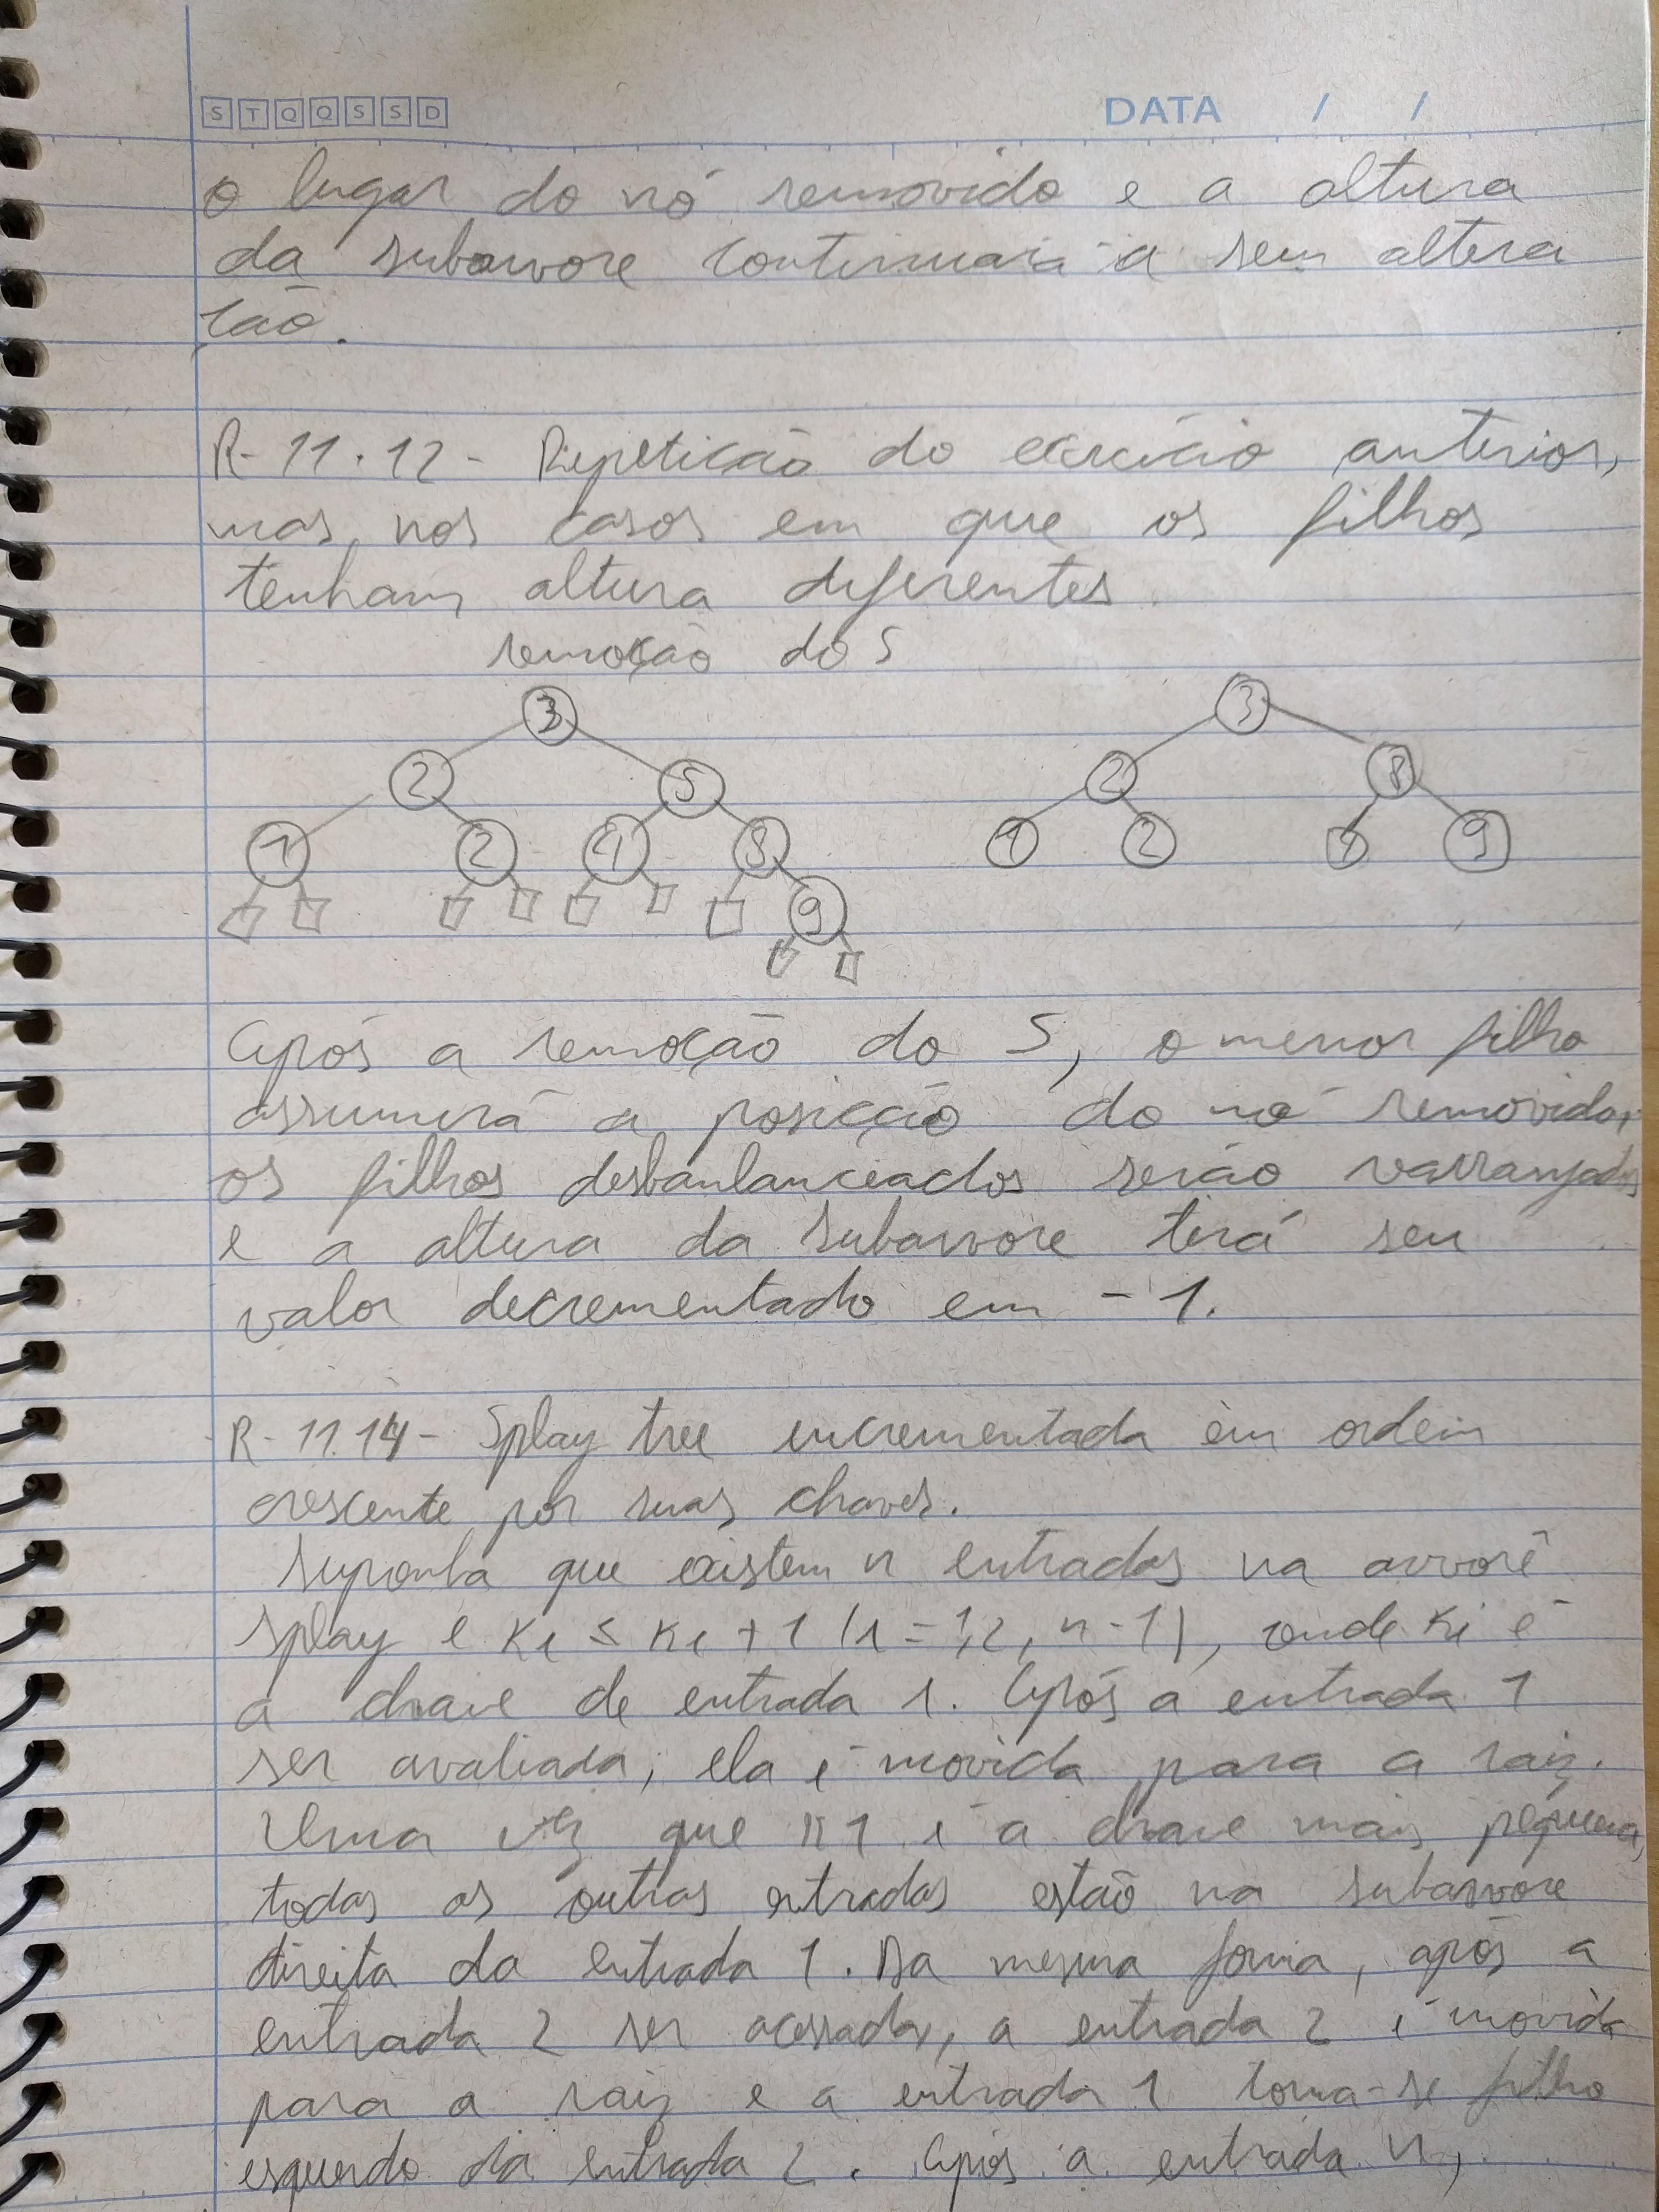 S T Q Q S S D DATA / /
o lugar do nó removido e a altura
da subarvore continuara a sem altera
ção.
R-11.12 - Repetição do exercício anterior,
mas nos casos em que os filhos
tenham altura diferentes
remoção do 5
3
2 5
1 2 4 8
9
3
2 8
1 2 4 9
Após a remoção do 5, o menor filho
assumirá a posição do nó removido,
os filhos desbanlanceados serão rearranjados
e a altura da subarvore terá seu
valor decrementado em -1.
R-11.14 - Splay tree incrementada em ordem
crescente por suas chaves.
Suponha que existem n entradas na arvore
splay e Ki ≤ Ki + 1 (1 = 1,2, n-1), onde Ki é
a chave de entrada 1. Após a entrada 1
ser avaliada, ela é movida para a raiz.
Uma vez que K1 é a chave mais pequena,
todas as outras entradas estão na subarvore
direita da entrada 1. Da mesma forma, após a
entrada 2 ser acessada, a entrada 2 é movida
para a raiz e a entrada 1 torna-se filho
esquerdo da entrada 2. Após a entrada n,